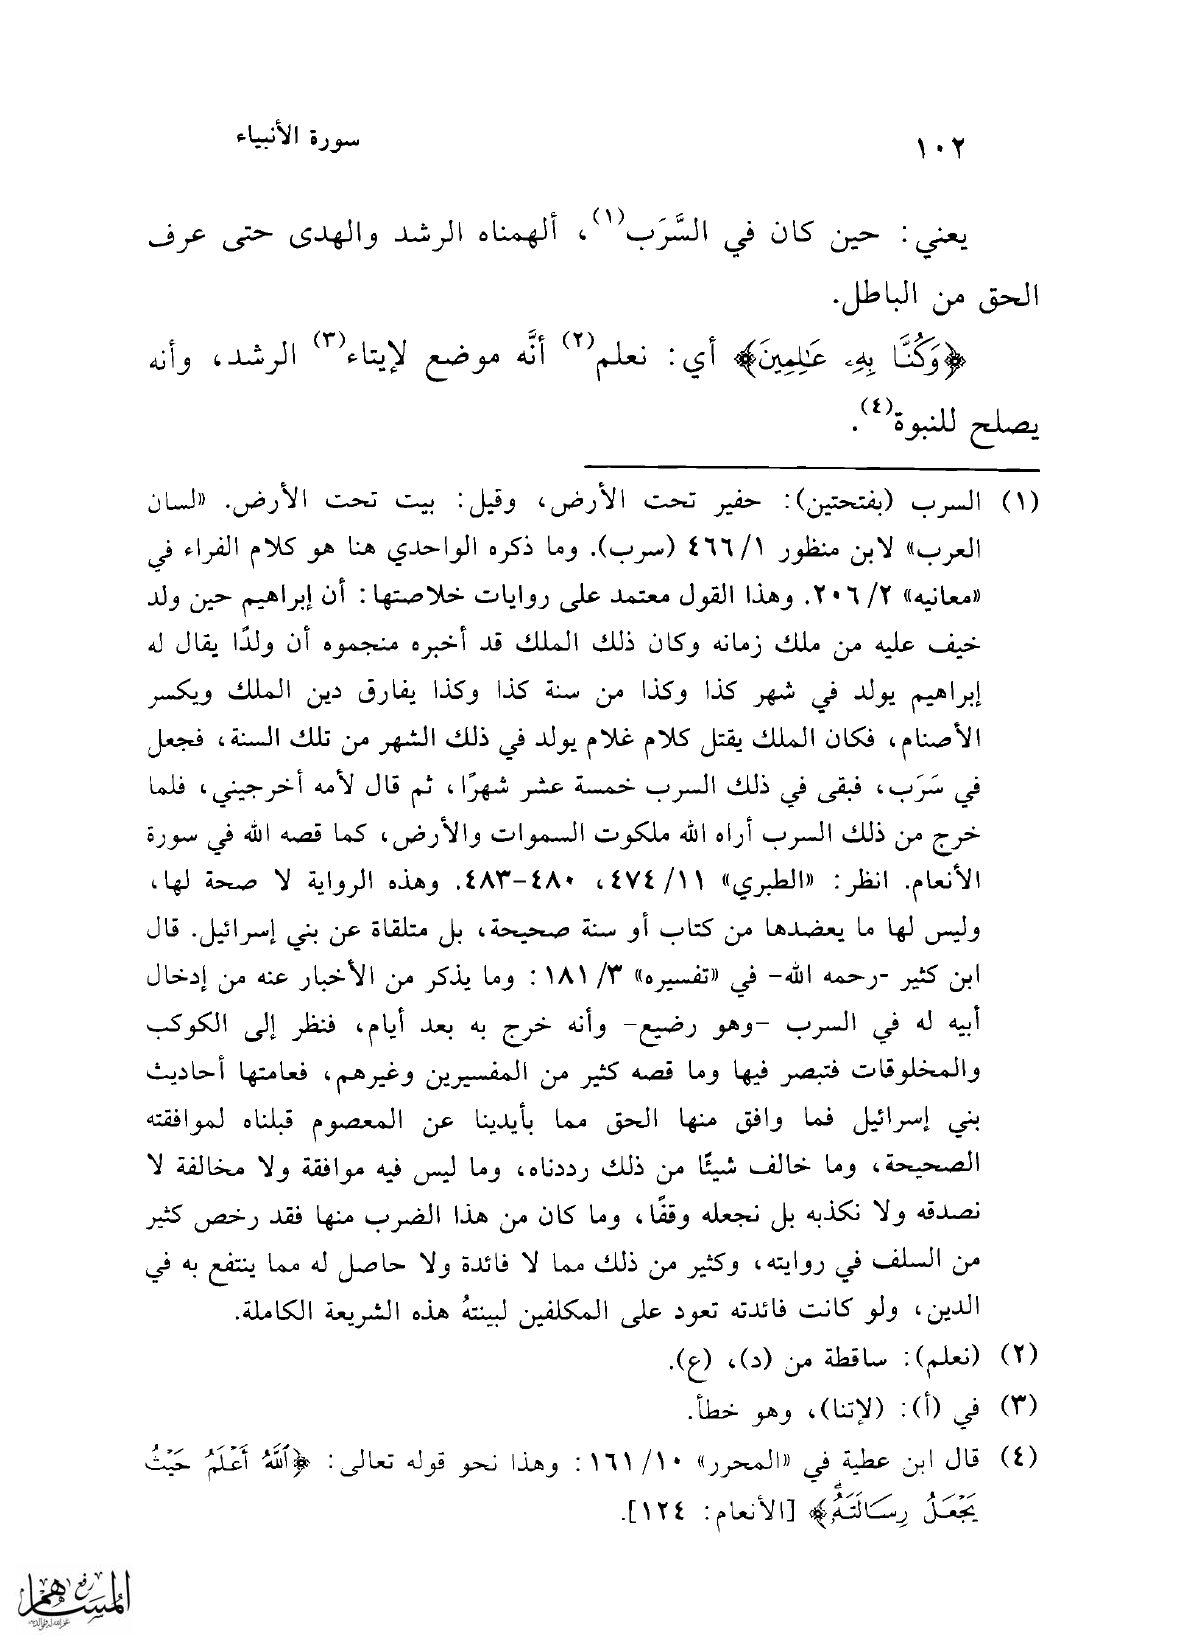 ١٠٢
سورة الأنبياء
يعني: حين كان في السَّرَب(١)، ألهمناه الرشد والهدى حتى عرف
الحق من الباطل.
﴿وَكُنَّا بِهِۦ عَٰلِمِينَ﴾ أي: نعلم(٢) أنَّه موضع لإيتاء(٣) الرشد، وأنه
يصلح للنبوة(٤).
(١) السرب (بفتحتين): حفير تحت الأرض، وقيل: بيت تحت الأرض. «لسان
العرب» لابن منظور ١/ ٤٦٦ (سرب). وما ذكره الواحدي هنا هو كلام الفراء في
«معانيه» ٢/ ٢٠٦. وهذا القول معتمد على روايات خلاصتها: أن إبراهيم حين ولد
خيف عليه من ملك زمانه وكان ذلك الملك قد أخبره منجموه أن ولدًا يقال له
إبراهيم يولد في شهر كذا وكذا من سنة كذا وكذا يفارق دين الملك ويكسر
الأصنام، فكان الملك يقتل كلام غلام يولد في ذلك الشهر من تلك السنة، فجعل
في سَرَب، فبقى في ذلك السرب خمسة عشر شهرًا، ثم قال لأمه أخرجيني، فلما
خرج من ذلك السرب أراه الله ملكوت السموات والأرض، كما قصه الله في سورة
الأنعام. انظر: «الطبري» ١١/ ٤٧٤، ٤٨٠-٤٨٣. وهذه الرواية لا صحة لها،
وليس لها ما يعضدها من كتاب أو سنة صحيحة، بل متلقاة عن بني إسرائيل. قال
ابن كثير -رحمه الله- في «تفسيره» ٣/ ١٨١: وما يذكر من الأخبار عنه من إدخال
أبيه له في السرب -وهو رضيع- وأنه خرج به بعد أيام، فنظر إلى الكوكب
والمخلوقات فتبصر فيها وما قصه كثير من المفسيرين وغيرهم، فعامتها أحاديث
بني إسرائيل فما وافق منها الحق مما بأيدينا عن المعصوم قبلناه لموافقته
الصحيحة، وما خالف شيئًا من ذلك رددناه، وما ليس فيه موافقة ولا مخالفة لا
نصدقه ولا نكذبه بل نجعله وقفًا، وما كان من هذا الضرب منها فقد رخص كثير
من السلف في روايته، وكثير من ذلك مما لا فائدة ولا حاصل له مما ينتفع به في
الدين، ولو كانت فائدته تعود على المكلفين لبينتهُ هذه الشريعة الكاملة.
(٢) (نعلم): ساقطة من (د)، (ع).
(٣) في (أ): (لإتنا)، وهو خطأ.
(٤) قال ابن عطية في «المحرر» ١٠/ ١٦١: وهذا نحو قوله تعالى: ﴿ٱللَّهُ أَعۡلَمُ حَيۡثُ
يَجۡعَلُ رِسَالَتَهُۥۗ﴾ [الأنعام: ١٢٤].